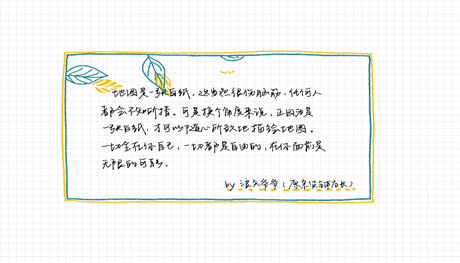 地图是一张白纸，这当然很伤脑筋，任何人
都会不知所措。可是换个角度来说，正因为是
一张白纸，才可以随心所欲地描绘地图。
一切全在你自己，一切都是自由的，在你面前是
无限的可能。
by 浪矢爷爷（